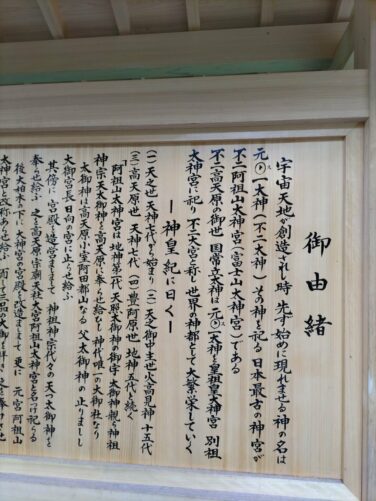 御由緒
宇宙天地が創造されし時 先ず始めに現れませる神の名は
元㋜一大神(不二大神) その神を祀る日本最古の神宮が
不二阿祖山太神宮(富士山太神宮)である
不二高天原の御世 国常立大神は元㋜一大神を皇祖皇大神宮 別祖
太神宮に祀り 不二大宮と称し 世界の神都として大繁栄していく
ー神皇紀に曰くー
(一)天之世 天神七代より始まり(二)天之御中主世火高見神十五代
(三)高天原世 天神七代(四)豊阿原世 地神五代と続く
「阿祖山太神宮は 地神第一代天照大御神の御宇 太御神親ら神祖
神宗天太御神を 高天原に奉らせ給ひし 神代唯一の大御社なり
太御神は高天原小室阿田都山なる 父太御神の止りましし
大御宮長日向の宮に止らせ給ふ
其傍に 宮殿を造営ましまして 神祖神宗代々の天つ太御神を
奉らせ給ふ 之を高天原宗廟天社大宮阿祖山太神宮と名つけ祀らる